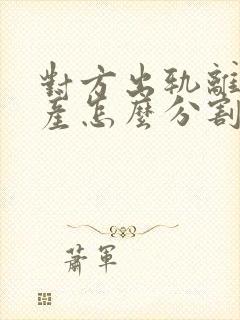 對方出軌離
産怎麼分割
蕭軍